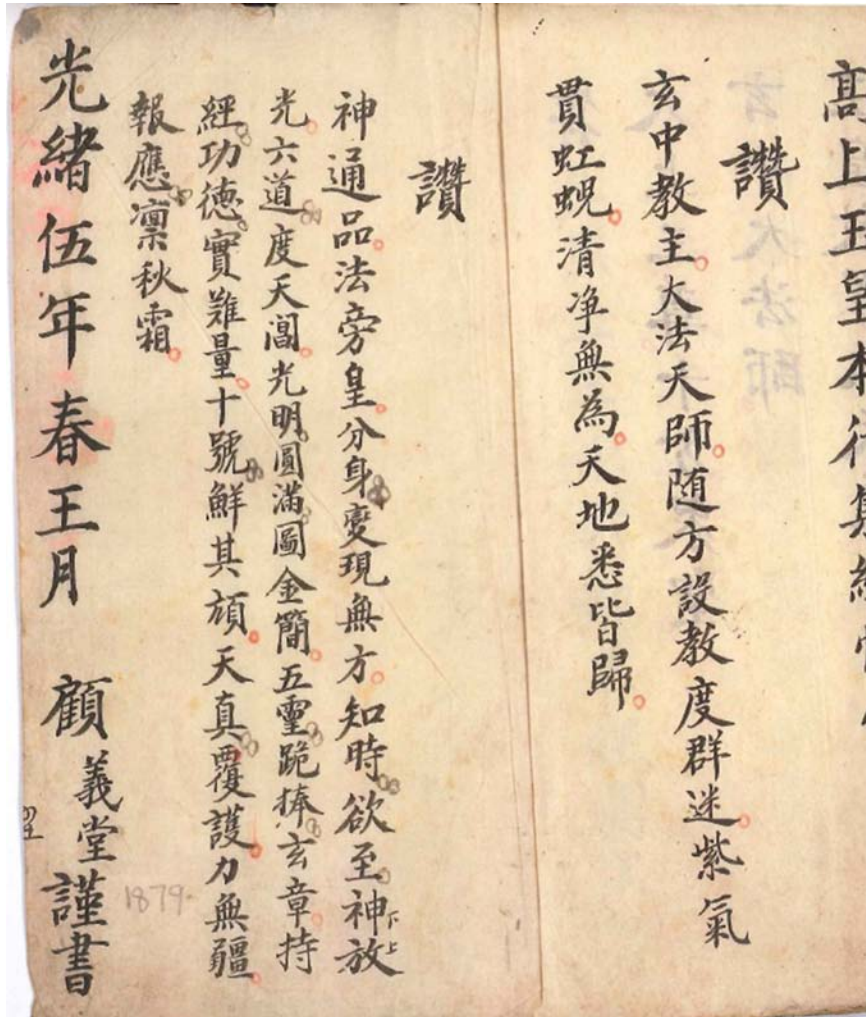 高上玉皇本行集經
讚
玄中教主大法天師随方設教度群迷紫氣
貫虹蜺清净無為天地悉皆歸
讚
神通品法旁皇分身變現無方知時欲至神放
下上
光六道度天閶光明圓滿圖金簡五霊跪捧玄章持
經功德實難量十號鮮其頏天真覆護力無疆
報應凛秋霜
光緒伍年春王月 顧義堂謹書
1879